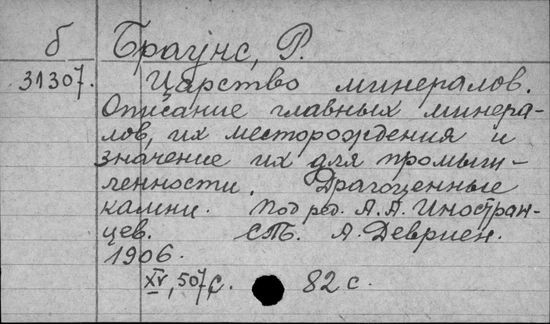 б Браунс, Р.
31307. Царство минералов.
Описание главных минера-
лов, их месторождения и
значение их для промыш-
ленности. Драгоценные
камни. Под ред. А. А. Иностран-
цев. СПб. А. Девриен.
1906.
XV, 507 с. 82 с.